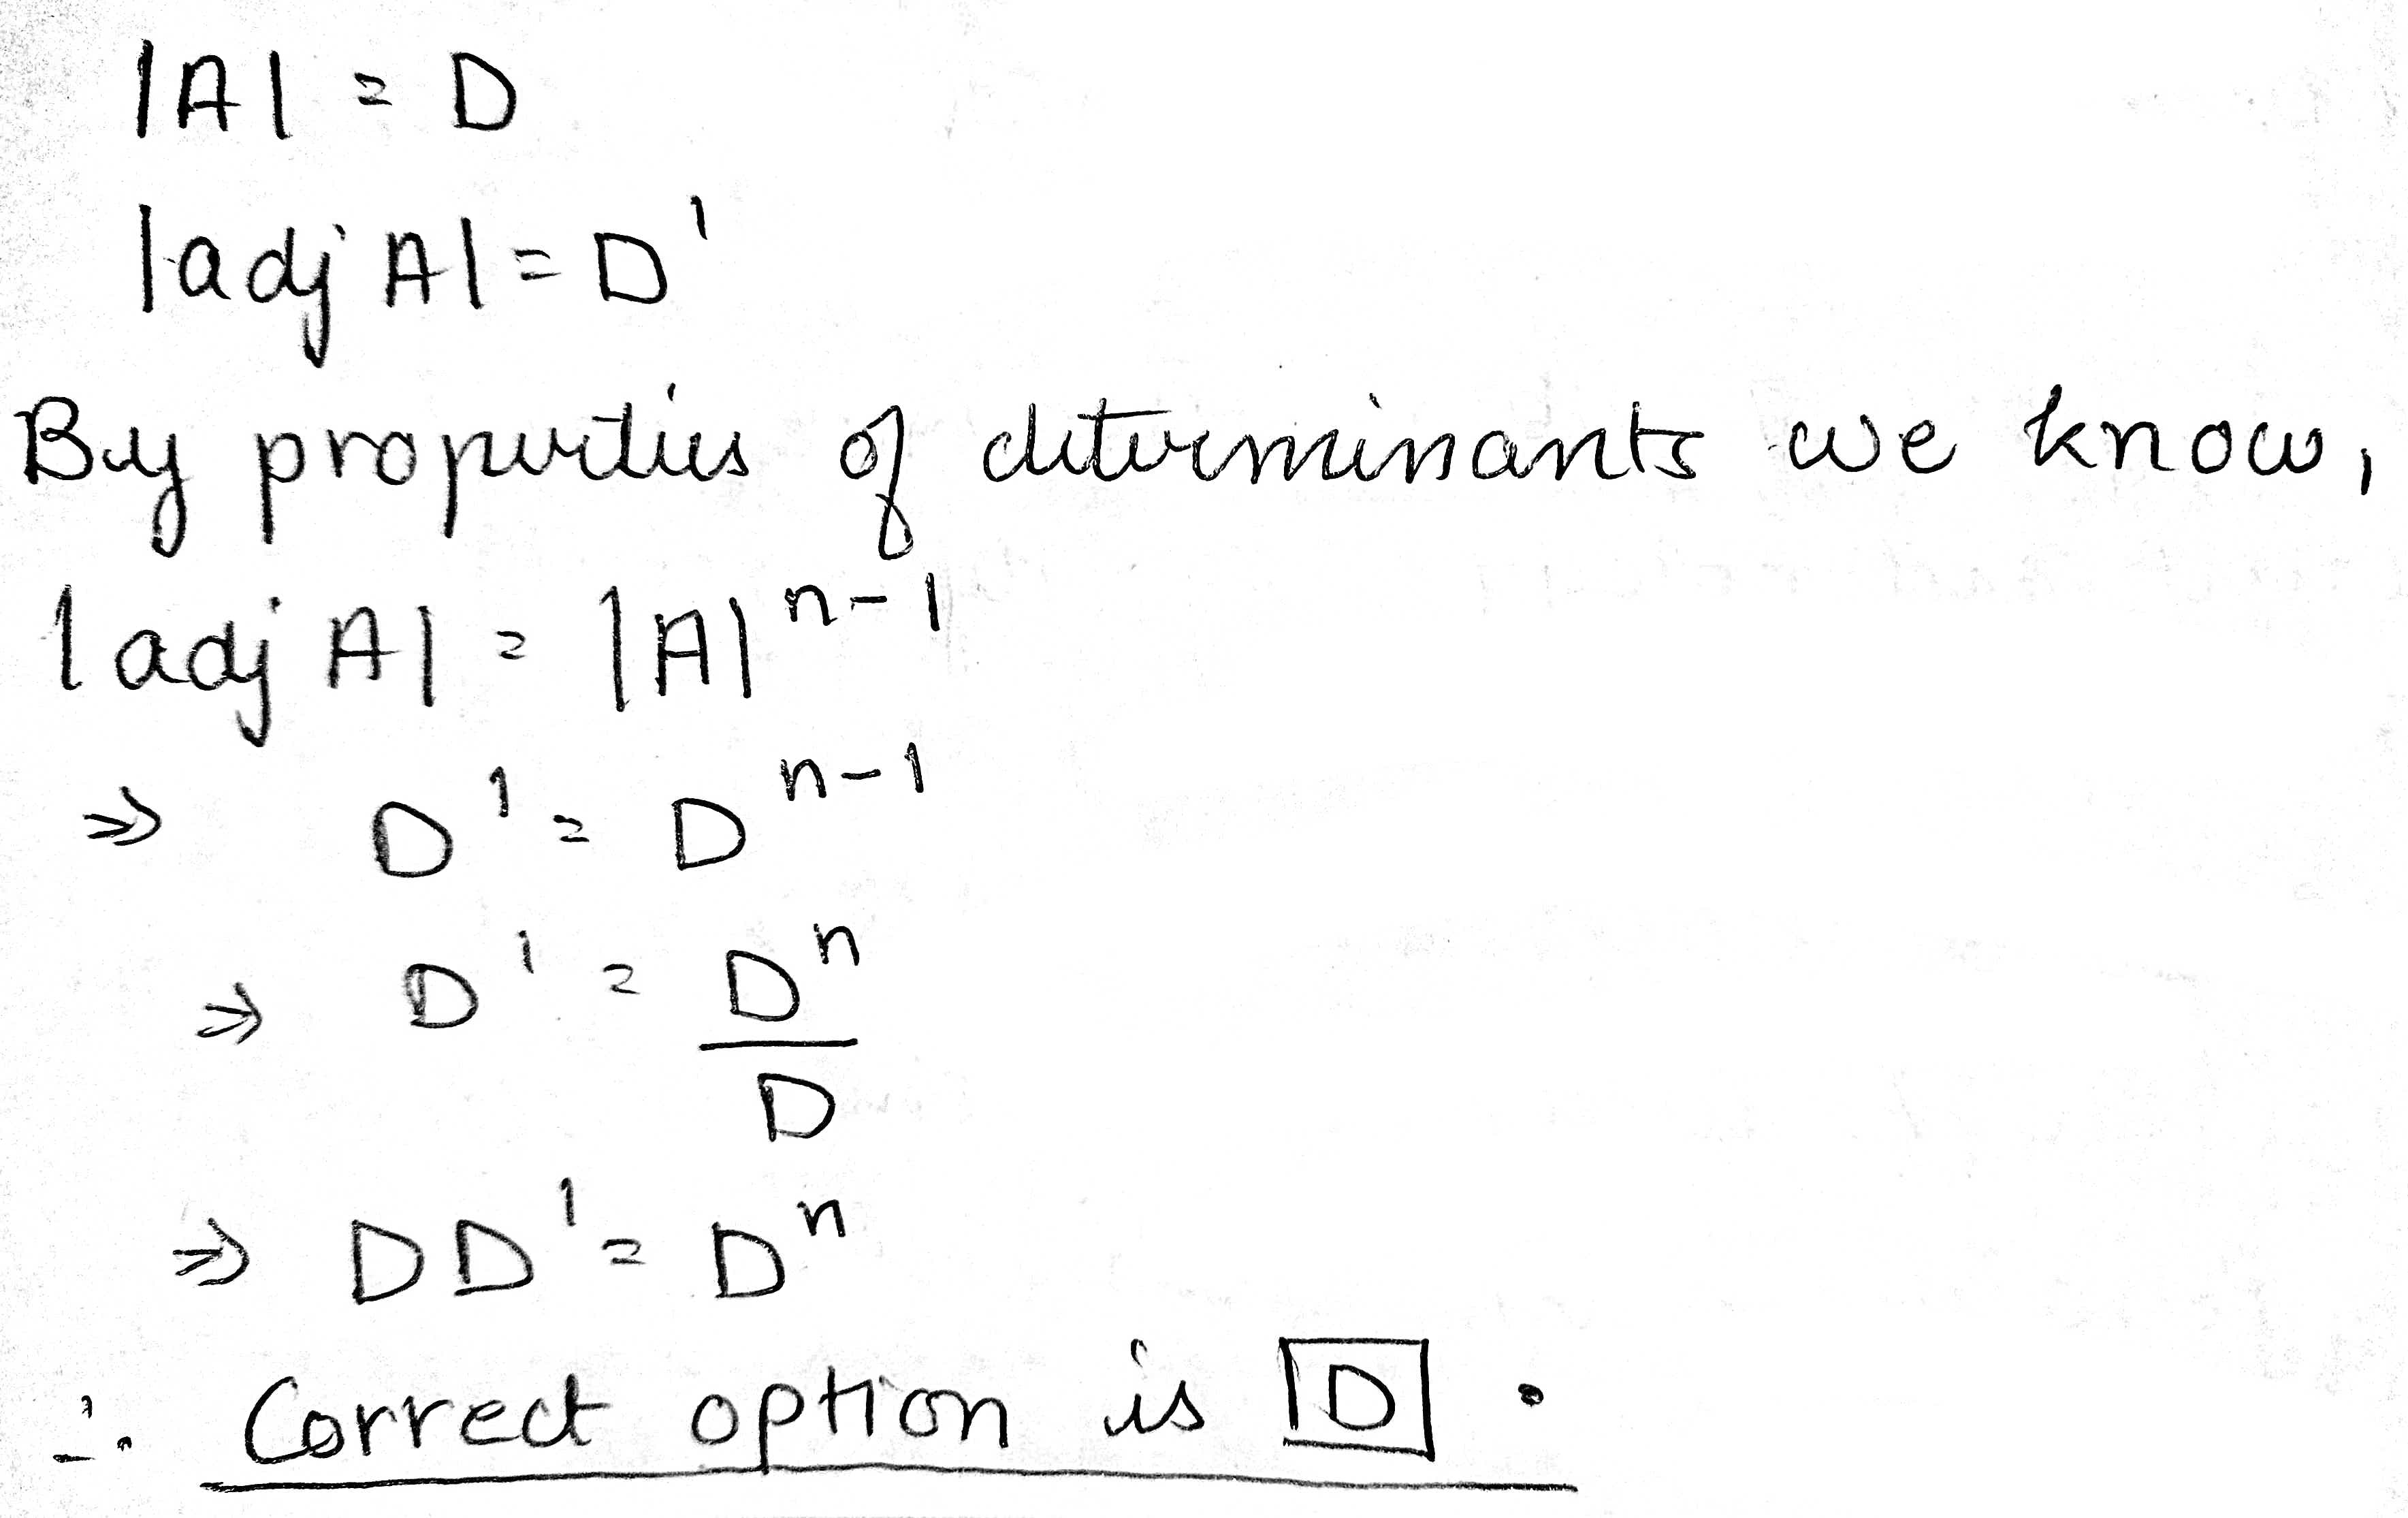 |A| = D
|adj A| = D'
By properties of determinants we know,
|adj A| = |A|ⁿ⁻¹
⇒ D' = Dⁿ⁻¹
⇒ D' = Dⁿ/D
⇒ DD' = Dⁿ
∴ Correct option is D.